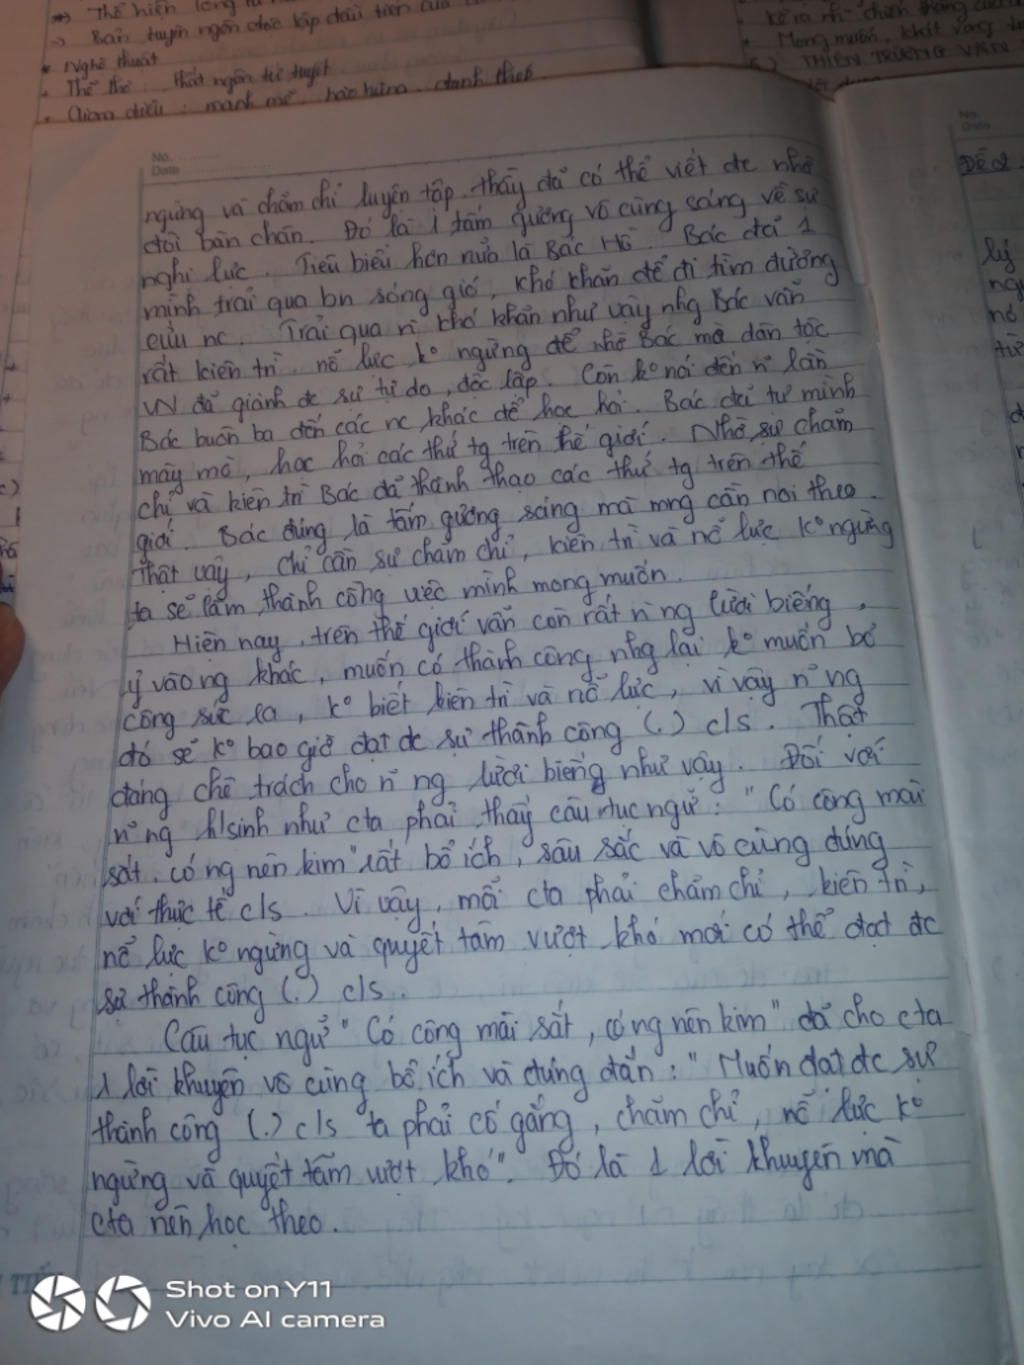 → Bản tuyên ngôn độc lập đầu tiên của
* Nghệ thuật
• Thể thơ: thất ngôn tứ tuyệt
• Giọng điệu: mạnh mẽ, hào hùng, đanh thép.
• Mong muốn, khát vọng
THIÊN TRƯỜNG VÃN
No.
Date
ngừng và chăm chỉ luyện tập. thầy đã có thể viết đc nhờ
đôi bàn chân. Đó là 1 tấm gương vô cùng sáng về sự
nghị lực. Tiêu biểu hơn nữa là Bác Hồ. Bác đã 1
mình trải qua bn sóng gió, khó khăn để đi tìm đường
cứu nc. Trải qua n~ khó khăn như vậy nhg Bác vẫn
rất kiên trì, nỗ lực k° ngừng để nhờ Bác mà dân tộc
VN đã giành đc sự tự do, độc lập. Còn k° nói đến n~ lần
Bác buôn ba đến các nc khác để học hỏi. Bác đã tự mình
mày mò, học hỏi các thứ tg trên thế giới. Nhờ sự chăm
chỉ và kiên trì Bác đã thành thạo các thứ tg trên thế
giới. Bác đúng là tấm gương sáng mà mng cần noi theo.
Thật vậy, chỉ cần sự chăm chỉ, kiên trì và nỗ lực k° ngừng
ta sẽ làm thành công việc mình mong muốn.
Hiện nay, trên thế giới vẫn còn rất n~ ng lười biếng,
ỷ vào ng khác, muốn có thành công nhg lại k° muốn bỏ
công sức ra, k° biết kiên trì và nỗ lực, vì vậy n~ ng
đó sẽ k° bao giờ đạt đc sự thành công (.) c/s. Thật
đáng chê trách cho n~ ng lười biếng như vậy. Đối với
n~ ng h/sinh như cta phải thấy câu tục ngữ: "Có công mài
sắt, có ng nên kim" rất bổ ích, sâu sắc và vô cùng đúng
với thực tế c/s. Vì vậy, mỗi cta phải chăm chỉ, kiên trì,
nỗ lực k° ngừng và quyết tâm vượt khó mới có thể đạt đc
sự thành công (.) c/s.
Câu tục ngữ "Có công mài sắt, có ng nên kim" đã cho cta
1 lời khuyên vô cùng bổ ích và đúng đắn: "Muốn đạt đc sự
thành công (.) c/s ta phải cố gắng, chăm chỉ, nỗ lực k°
ngừng và quyết tâm vượt khó". Đó là 1 lời khuyên mà
cta nên học theo.
No.
Date
Đề 2.
Shot on Y11
Vivo AI camera